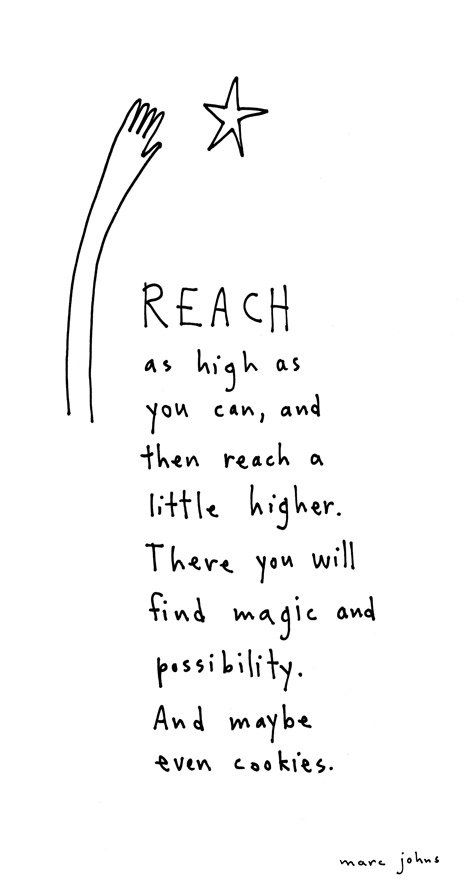 REACH
as high as
you can, and
then reach a
little higher.
There you will
find magic and
possibility.
And maybe
even cookies.
marc johns